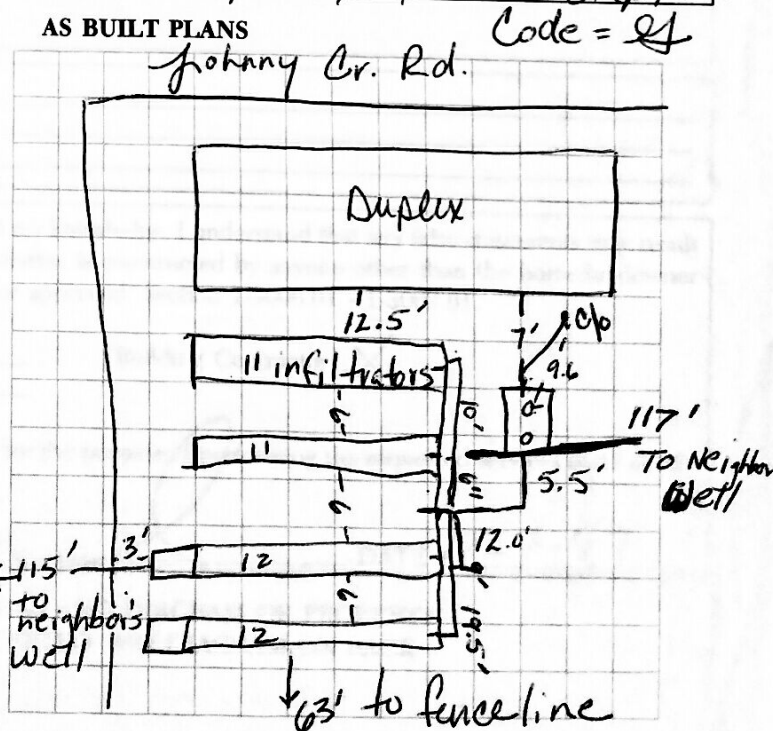 AS BUILT PLANS
Code =
Johnny Cr. Rd.
Duplex
12.5'
c/o
7'
9.6'
11 infiltrators
10'
9
117'
TO Neighbor
Well
11
5.5'
9
12.0'
115'
3'
12
to
neighbor's
well
9
12
19.5'
63' to fenceline